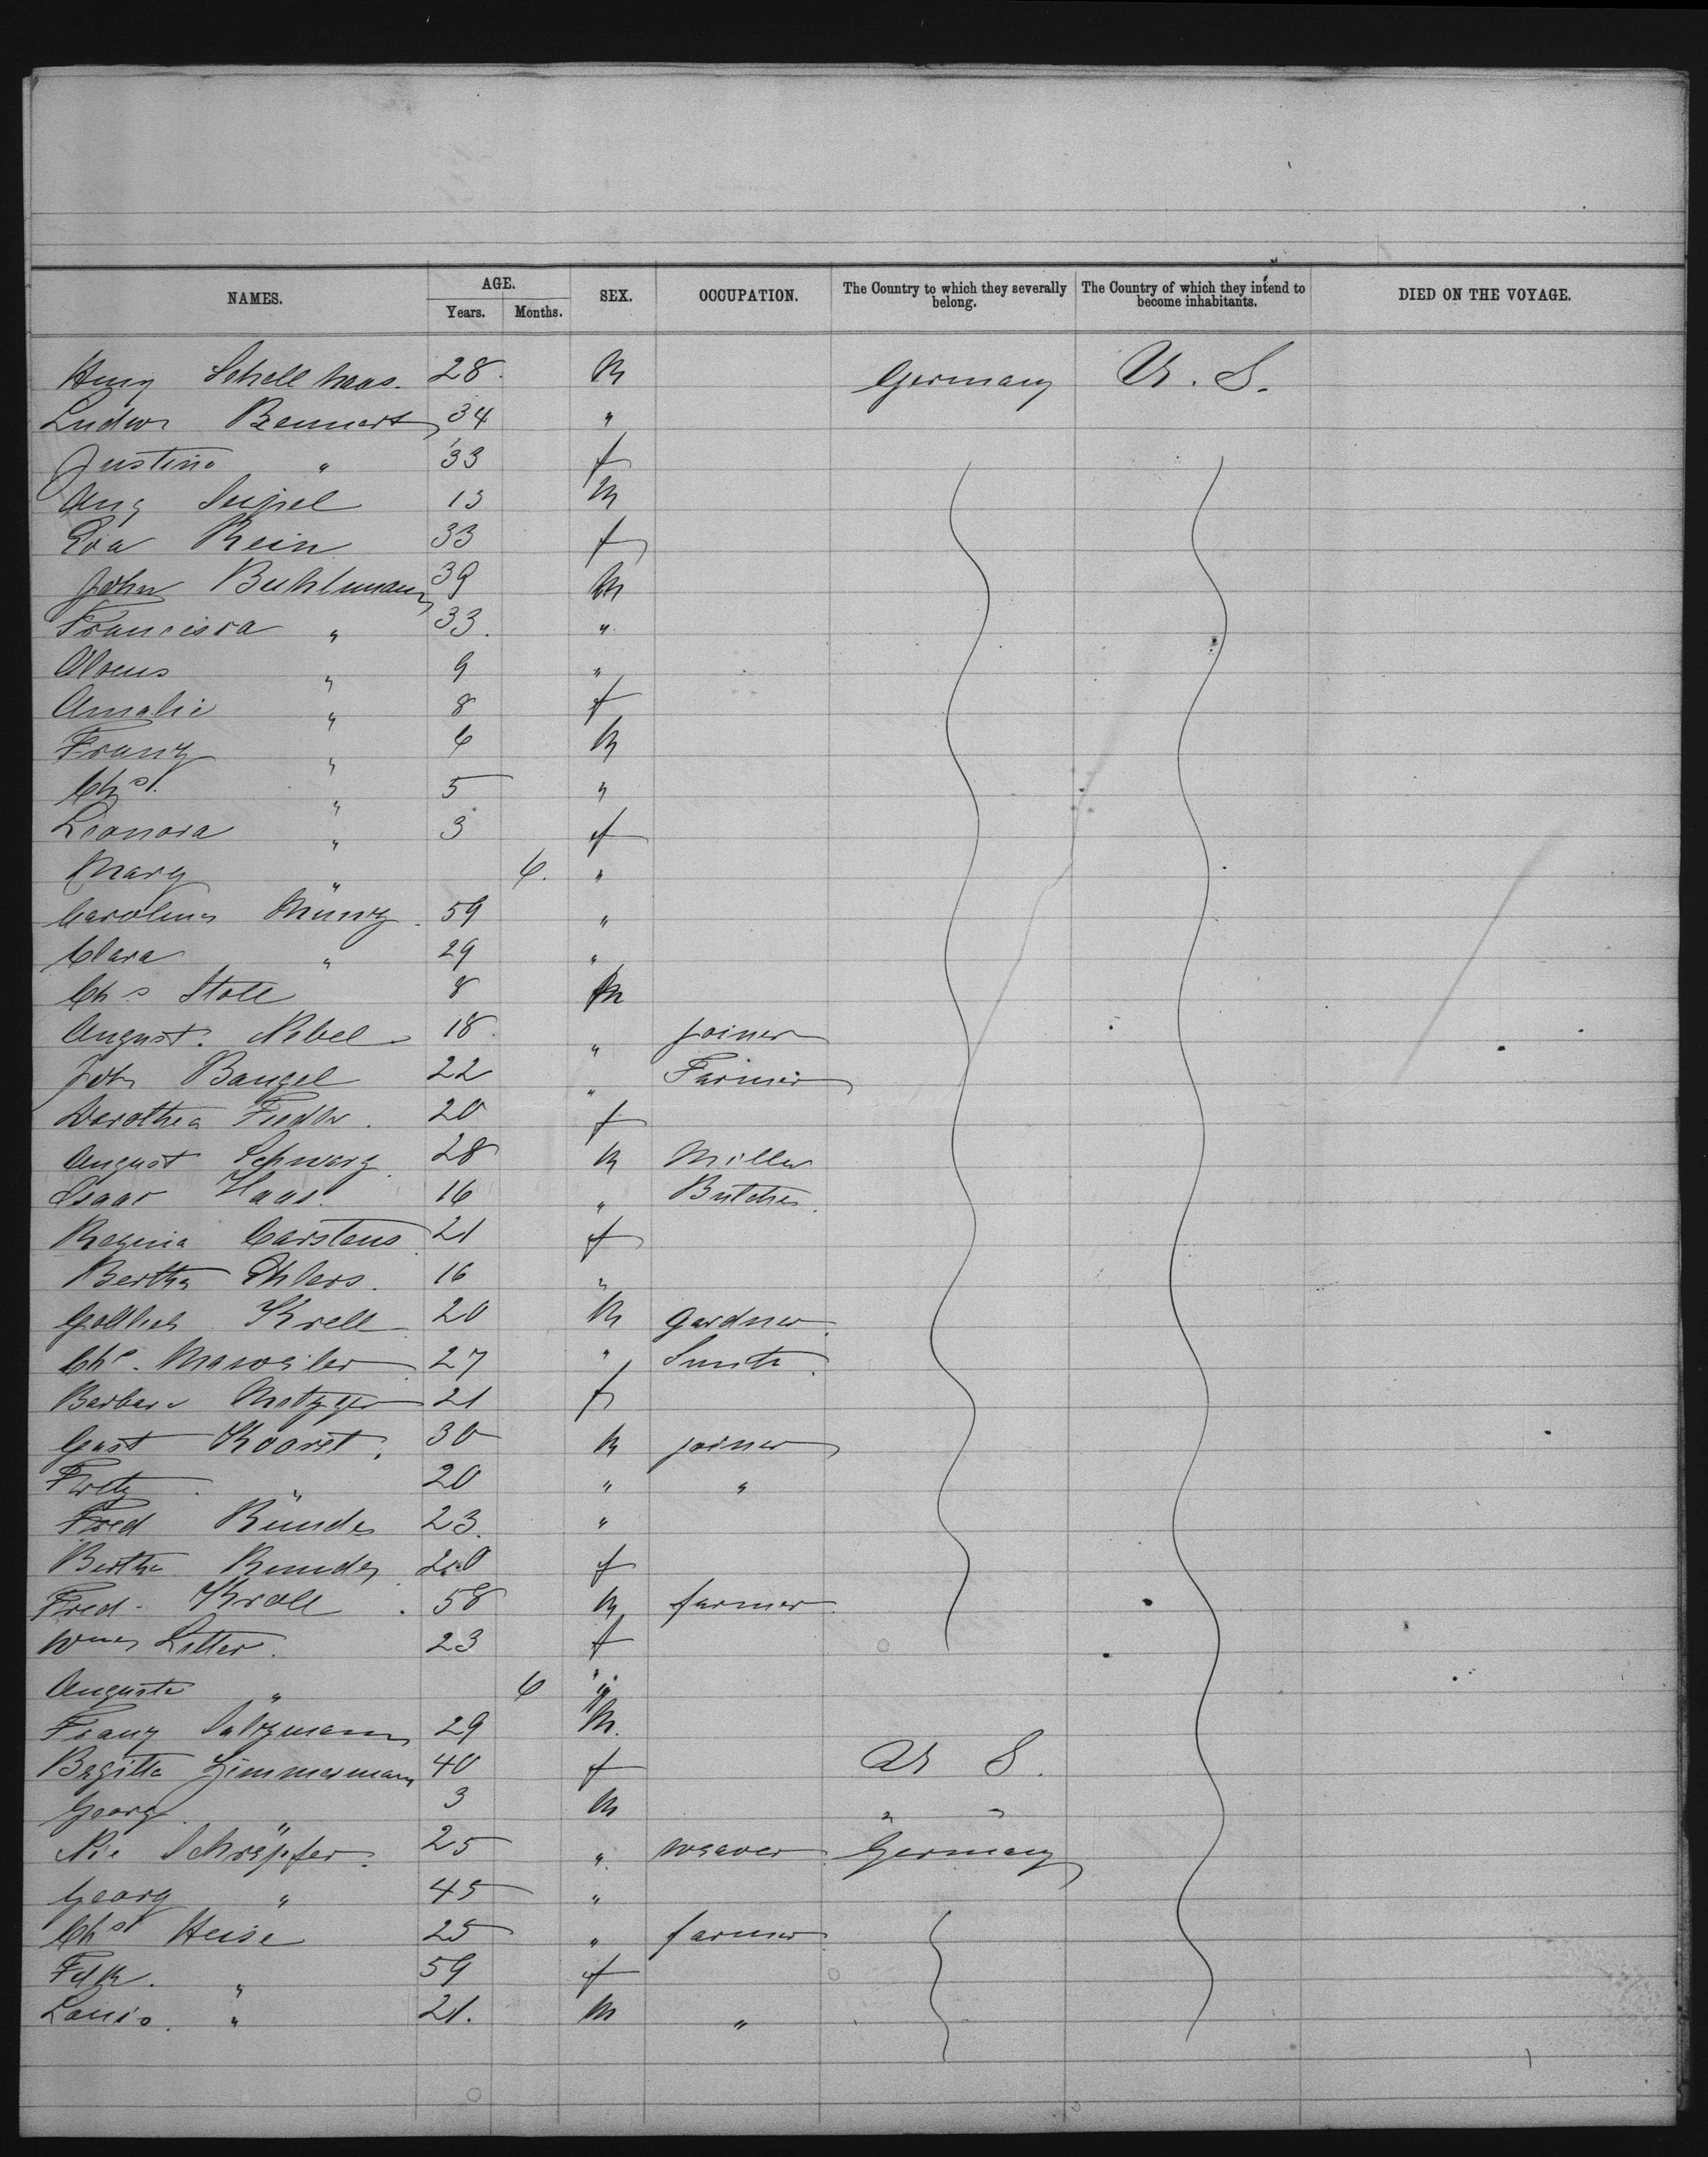 NAMES. AGE. Years. Months. SEX. OCCUPATION. The Country to which they severally belong. The Country of which they intend to become inhabitants. DIED ON THE VOYAGE.
Schellhaas. 28. M Germany U. S.
Ludw Bennert 34 "
Justine " 33 f
Aug Seipel 13 M
Eva Rein 33 f
John Buhlmann 39 M
Francisca " 33. "
" 9 "
Amalie " 8 f
Franz " 6 M
Chst. " 5 "
Leonora " 3 f
Mary " 6. "
Caroline Munz. 59 "
Clara " 29 "
Chs Stoll 8 M
August. Nebel. 18. " joiner
Joh Bangel 22 " Farmer
Dorothea Fiedler. 20 f
August Schwarz. 28 M Miller
Isaac Haas. 16 " Butcher.
Regina Carstens 21 f
Bertha Ehlers. 16 "
Gottlieb Krell 20 M Gardner.
Chs. 27 " Smith.
Barbara Metzger 21 f
Gust 30 M joiner
Fritz " 20 " "
Fred Runde 23. "
Bertha Runde 20 f
Fred. Kroll . 58 M farmer.
Litter. 23 f
Auguste " 6 "
Franz Saltzmann 29 M.
Brgitta Zimmermann 40 f U S.
Georg. " 3 M " "
Nic Schröpfer. 25 " weaver Germany
Georg " 45 "
Chst Heise 25 " farmer
" 59 f
Louis. " 21. M "